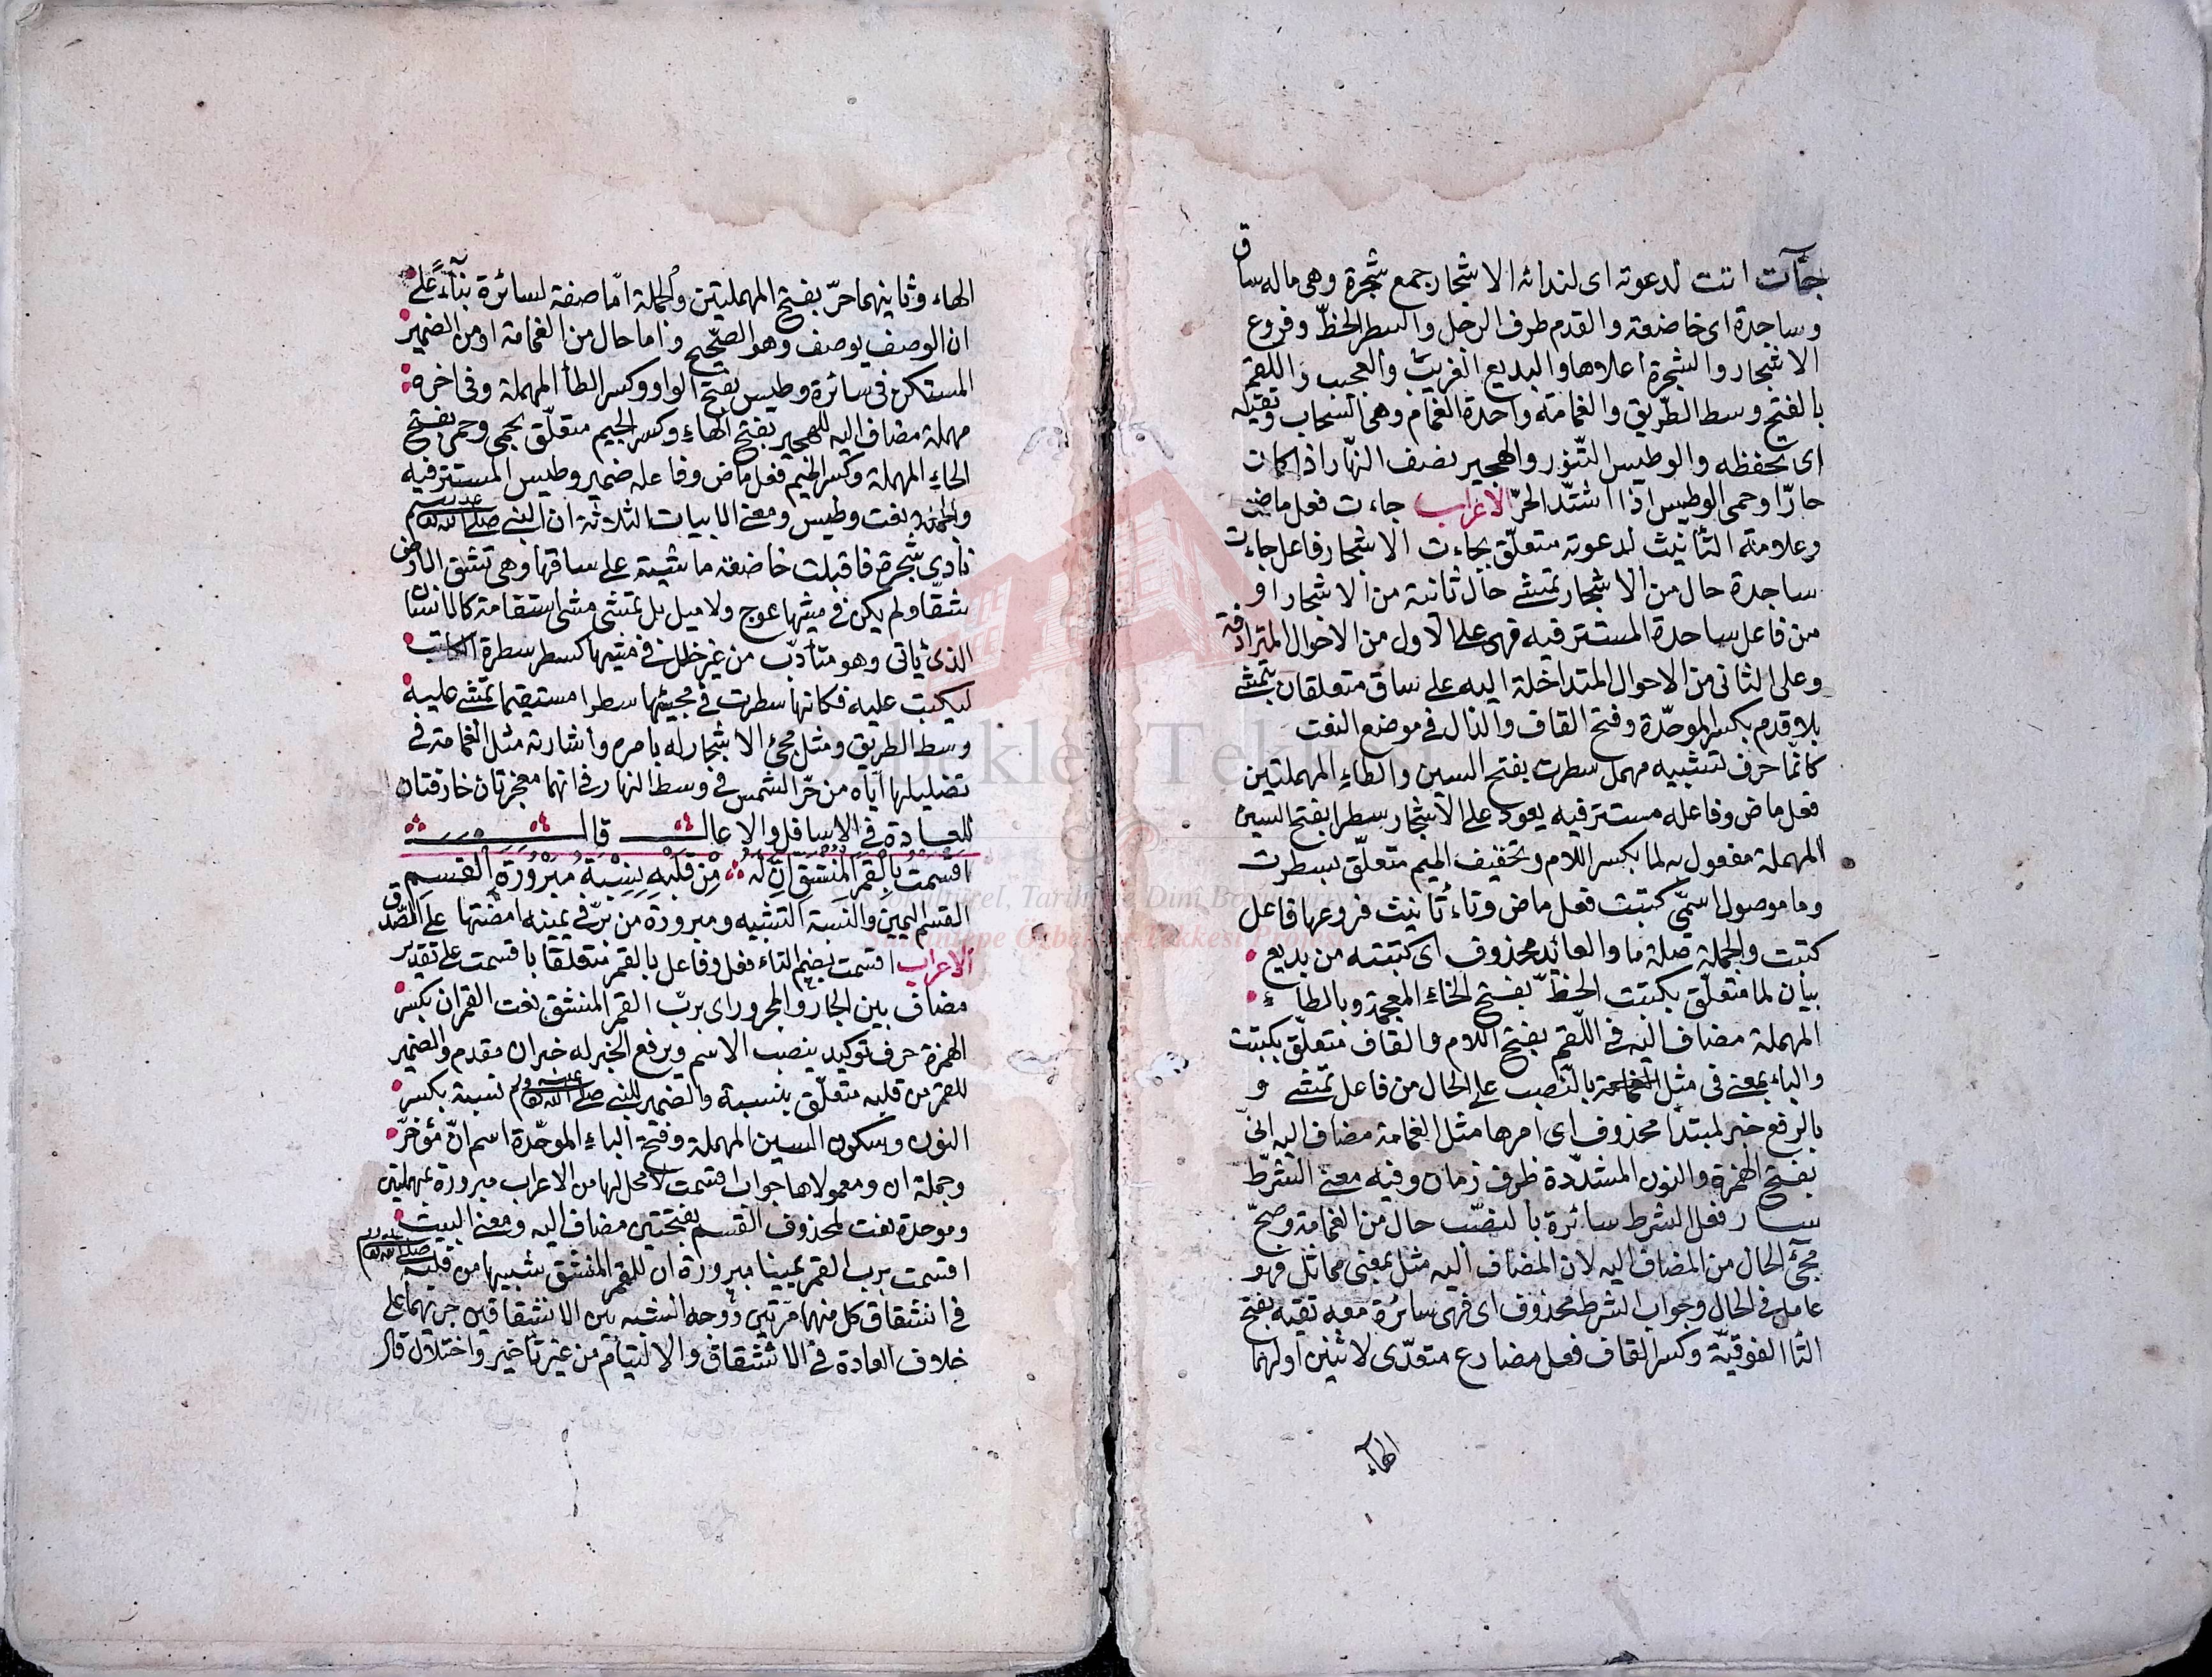 جآءت اتت لدعوته اى لندائه الاشجار جمع شجرة وهى ماله ساق
وساجدة اى خاضعة والقدم طرف الرجل والسطر الخظّ وفروع
الاشجار والشجرة اعلاها والبديع الغريب والعجيب واللقم
بالفتح وسط الطّريق والغمامة واحدة الغمام وهى السحاب وتقيه
اى تحفظه والوطيس التنّور والهجير نصف النهّار اذا كان
حارّا وحمى الوطيس اذا اشتدّ الحرّ الاعراب جاءت فعل ماض
وعلامة التأنيث لدعوته متعلّق بجاءت الاشجار فاعل جاءت
ساجدة حال من الاشجار تمشى حال ثانية من الاشجار او
من فاعل ساجدة المستتر فيه فهى على الاول من الاحوال المترادفة
وعلى الثانى من الاحوال المتداخلة اليه على ساق متعلقان بتمشى
بلا قدم بكسر الموحّدة وفتح القاف والدال فى موضع النعت
كانّما حرف تشبيه مهمل سطرت بفتح السين والطاء المهملتين
فعل ماض وفاعله مستتر فيه يعود على الاشجار سطرا بفتح السين
المهملة مفعول به لما بكسر اللام وتخفيف الميم متعلّق بسطرت
وما موصول اسمّى كتبت فعل ماض وتاء تأنيث فروعها فاعل
كتبت والجملة صلة ما والعايد محذوف اى كتبته من بديع
بيان لما متعلّق بكتبت الخظّ بفتح الخاء المعجمة وبالطاء
المهملة مضاف اليه فى اللّقم بفتح اللام والقاف متعلّق بكتبت
والباء بمعنى فى مثل الغمامة بالنّصب على الحال من فاعل تمشى و
بالرفع خبر لمبتدأ محذوف اى امرها مثل الغمامة مضاف اليه انىّ
بفتح الهمزة والنون المشدّدة ظرف زمان وفيه معنى الشرط
سار فعل الشرط سائرة بالنصّب حال من الغمامة وصحّ
مجئ الحال من المضاف اليه لان المضاف اليه مثل بمعنى مماثل فهو
عامل فى الحال وجواب الشرط محذوف اى فهى سائرة معه تقيه بفتح
التّا الفوقيّة وكسر القاف فعل مضارع متعدّى لاثنين اولهما
الهآء
الهاء وثانيهما حرّ بفتح المهملتين والجملة امّا صفة لسائرة بنآءً على
ان الوصف يوصف وهو الصّحيح واما حال من الغمامة او من الضمير
المستكن فى سائرة وطيس بفتح الواو وكسر الطأ المهملة وفى اخره
مهملة مضاف اليه للهجير بفتح الهاء وكسر الجيم متعلّق بحمى وحمى بفتح
الحاء المهملة وكسر الميم فعل ماض وفاعله ضمير وطيس المستتر فيه
والجملة نعت وطيس ومعنى الابيات الثلاثة ان النبى صلى الله عليه وسلم
نادى شّجرة فاقبلت خاضعة ماشية على ساقها وهى تشق الارض
شقّا ولم يكن فى مشيها عوج ولا ميل بل تمشى مشى استقامة كالانسان
الذى يأتى وهو متأدّب من غير خلل فى مشيها كسطر سطرة الكاتب
ليكتب عليه فكانها سطرت فى مجيئها سطرا مستقيما تمشى عليه
وسط الطريق ومثل مجئ الاشجار له بامره واشارته مثل الغمامة فى
تضليلها اياه من حرّ الشمس فى وسط النهار فانهما معجزتان خارقتان
للعادة فى الاسافل والاعالى قال
اقسمت بالقمر المنشق ان له من قلبه نسبة مبرورة القسم
القسم اليمين والنسبة التشبيه ومبرورة من برّ فى يمينه امضتها على الصّدق
الاعراب اقسمت بضم التاء فعل وفاعل بالقمر متعلقا باقسمت على تقدير
مضاف بين الجار والمجرور اى بربّ القمر المنشق نعت القمر ان بكسر
الهمزة حرف توكيد ينصب الاسم ويرفع الخبر له خبر ان مقدم والضمير
للقمر من قلبه متعلّق بنسبة والضمير للنبى صلى الله عليه وسلم نسبة بكسر
النون وسكون السين المهملة وفتح الباء الموحّدة اسم انّ مؤخرّ
وجملة ان ومعمولاها جواب اقسمت لا محل لها من الاعراب مبرورة بمهملتين
وموحدة نعت لمحذوف القسم بفتحتين مضاف اليه ومعنى البيت
اقسمت برب القمر يمينا مبرورة ان للقمر المنشق شبيها من قلبه صلى الله عليه وسلم
فى انشقاق كل منهما مرّتين ووجه الشبه بين الانشقاقين جريهما على
خلاف العادة فى الانشقاق والالتيام من غير تأخير واختلال قال